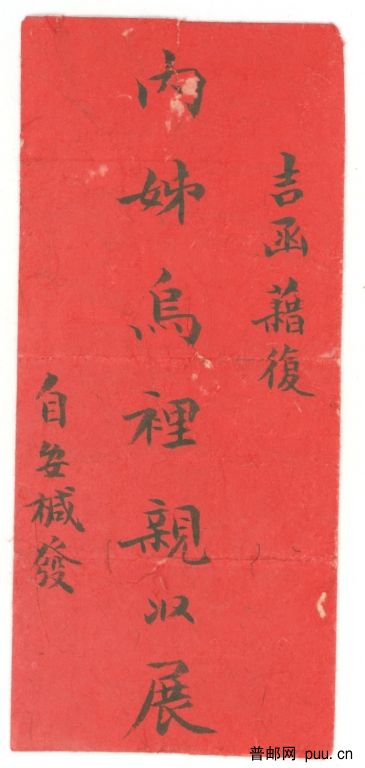 吉函藉復
內姊烏裡親收展
自安椷發
普邮网 puu.cn